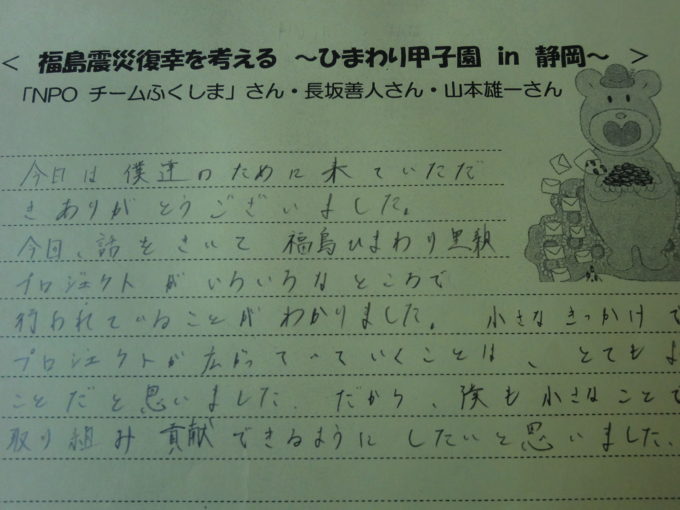 ＜ 福島震災復幸を考える ～ひまわり甲子園 in 静岡～ ＞
「NPO チームふくしま」さん・長坂善人さん・山本雄一さん
今日は僕達のために来ていただ
きありがとうございました。
今日、話をきいて 福島ひまわり里親
プロジェクトがいろいろなところで
行われていることがわかりました。 小さなきっかけで
プロジェクトが広がっていていくことは、とてもよ
ことだと思いました。だから、僕も小さなことで
取り組み貢献できるようにしたいと思いました。